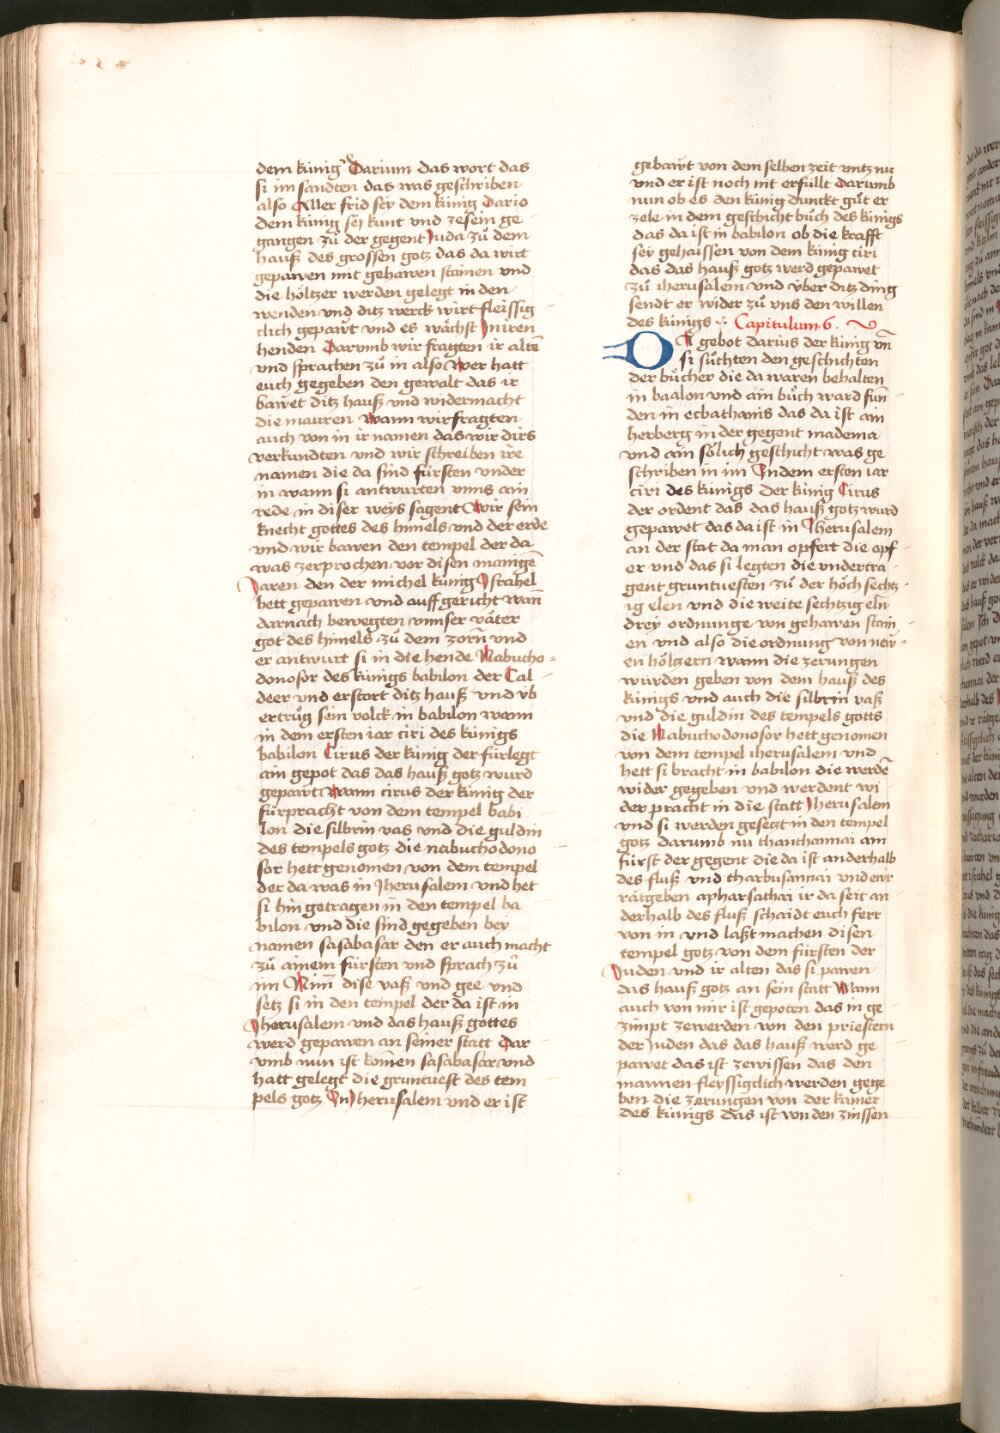 dem künig Darium das wort das
si im sandten das was geschriben
also Aller frid sey dem künig Dario
dem künig sej kunt vnd zesein ge
gangen zů der gegent Juda zů dem
hauß des grossen gotz das da wirt
gepawen mit gehawen stainen vnd
die höltzer werden gelegt in den
wenden vnd ditz werck wirt fleissig
clich gepawt vnd es wächst In iren
henden Darumb wir fragten ir altē
vnd sprachen zů in also wer hatt
euch gegeben den gewalt das ir
bawet ditz hauß vnd widermacht
die mauren wann wir fragten
auch von in ir namen das wir dirs
verkundten vnd wir schreiben ire
namen die da sind fürsten vnder
in wann si antwurten vnns ain
rede in diser weys sagent wir sein
knecht gottes des himels vnd der erde
vnd wir bawen den tempel der da
was zerprochen vor disen manigē
Jaren den der michel künig Israhel
hett gepawen vnd auffgericht wañ
darnach bewegten vnnser väter
got des himels zů dem zorn vnd
er antwurt si in die hende Nabucho-
donosor des künigs babilon der Cal-
deer vnd erstort ditz hauß vnd vb
ertrůg sein volck in babilon wann
in dem ersten iar ciri des künigs
babilon Cirus der künig der fürlegt
ain gepot das das hauß gotz wurd
gepawt wann cirus der künig der
fürpracht von dem tempel babi
lon die silbrin vas vnd die guldin
des tempels gotz die nabuchodono
sor hett genomen von dem tempel
der da was in Jherusalem vnd het
si hin getragen in den tempel ba
bilon vnd die sind gegeben bey
namen sasabasar den er auch macht
zů ainem fürsten vnd sprach zů
im Nim dise vaß vnd gee vnd
setz si in den tempel der da ist in
Jherusalem vnd das hauß gottes
werd gepawen an seiner statt Dar
vmb nun ist komen sasabasar vnd
hatt gelegt die gruntuest des tem
pels gotz In Jherusalem vnd er ist
gebawt von dem selben zeit vntz nu
vnd er ist noch nit erfüllt Darumb
nun ob es den künig dunckt gůt er
zele in dem geschicht bůch des künigs
das da ist in babilon ob die krafft
sey gehaissen von dem künig ciri
das das hauß gotz werd gepawet
zů iherusalem vnd vber ditz ding
sendt er wider zů vns den willen
des künigs Capitulum 6.
DA gebot darius der künig vñ
si sůchten den geschichten
der bücher die da waren behalten
in baalon vnd ain bůch ward fun
den in ecbathanis das da ist ain
herberg in der gegent madema
vnd ain sölich geschicht was ge
schriben in im In dem ersten iar
ciri des künigs der künig Cirus
der ordent das das hauß gotz wurd
gepawet das da ist in Jherusalem
an der stat da man opfert die opf-
er vnd das si legten die vndertra-
gent gruntuesten zů der höch sechtz-
ig elen vnd die weite sechtzig eln
drey ordnunge von gehawen stain-
en vnd also die ordnung von new-
en höltzern wann die zerungen
würden geben von dem hauß des
künigs vnd auch die silbrin vaß
vnd die guldin des tempels gotts
die Nabuchodonosor hett genomen
von dem tempel iherusalem vnd
hett si bracht in babilon die werdē
wider gegeben vnd werdent wi
der pracht in die statt Jherusalem
vnd si werden gesetzt in den tempel
gotz darumb nu thanthannai am
fürst der gegent die da ist anderhalb
des fluß vnd tharbusannai vnd ewr
ratgeben apharsathai ir da seit an
derhalb des fluß schaidt euch ferr
von in vnd laßt machen disen
tempel gotz von dem fürsten der
Juden vnd ir alten das si pawen
das hauß gotz an sein statt Wann
auch von mir ist gepoten das in ge
zimpt zewerden von den priestern
der Juden das das hauß werd ge
pawet das ist zewissen das den
mannen fleyssigclich werden gege
ben die zerungen von der kamer
des künigs das ist von den zinssen